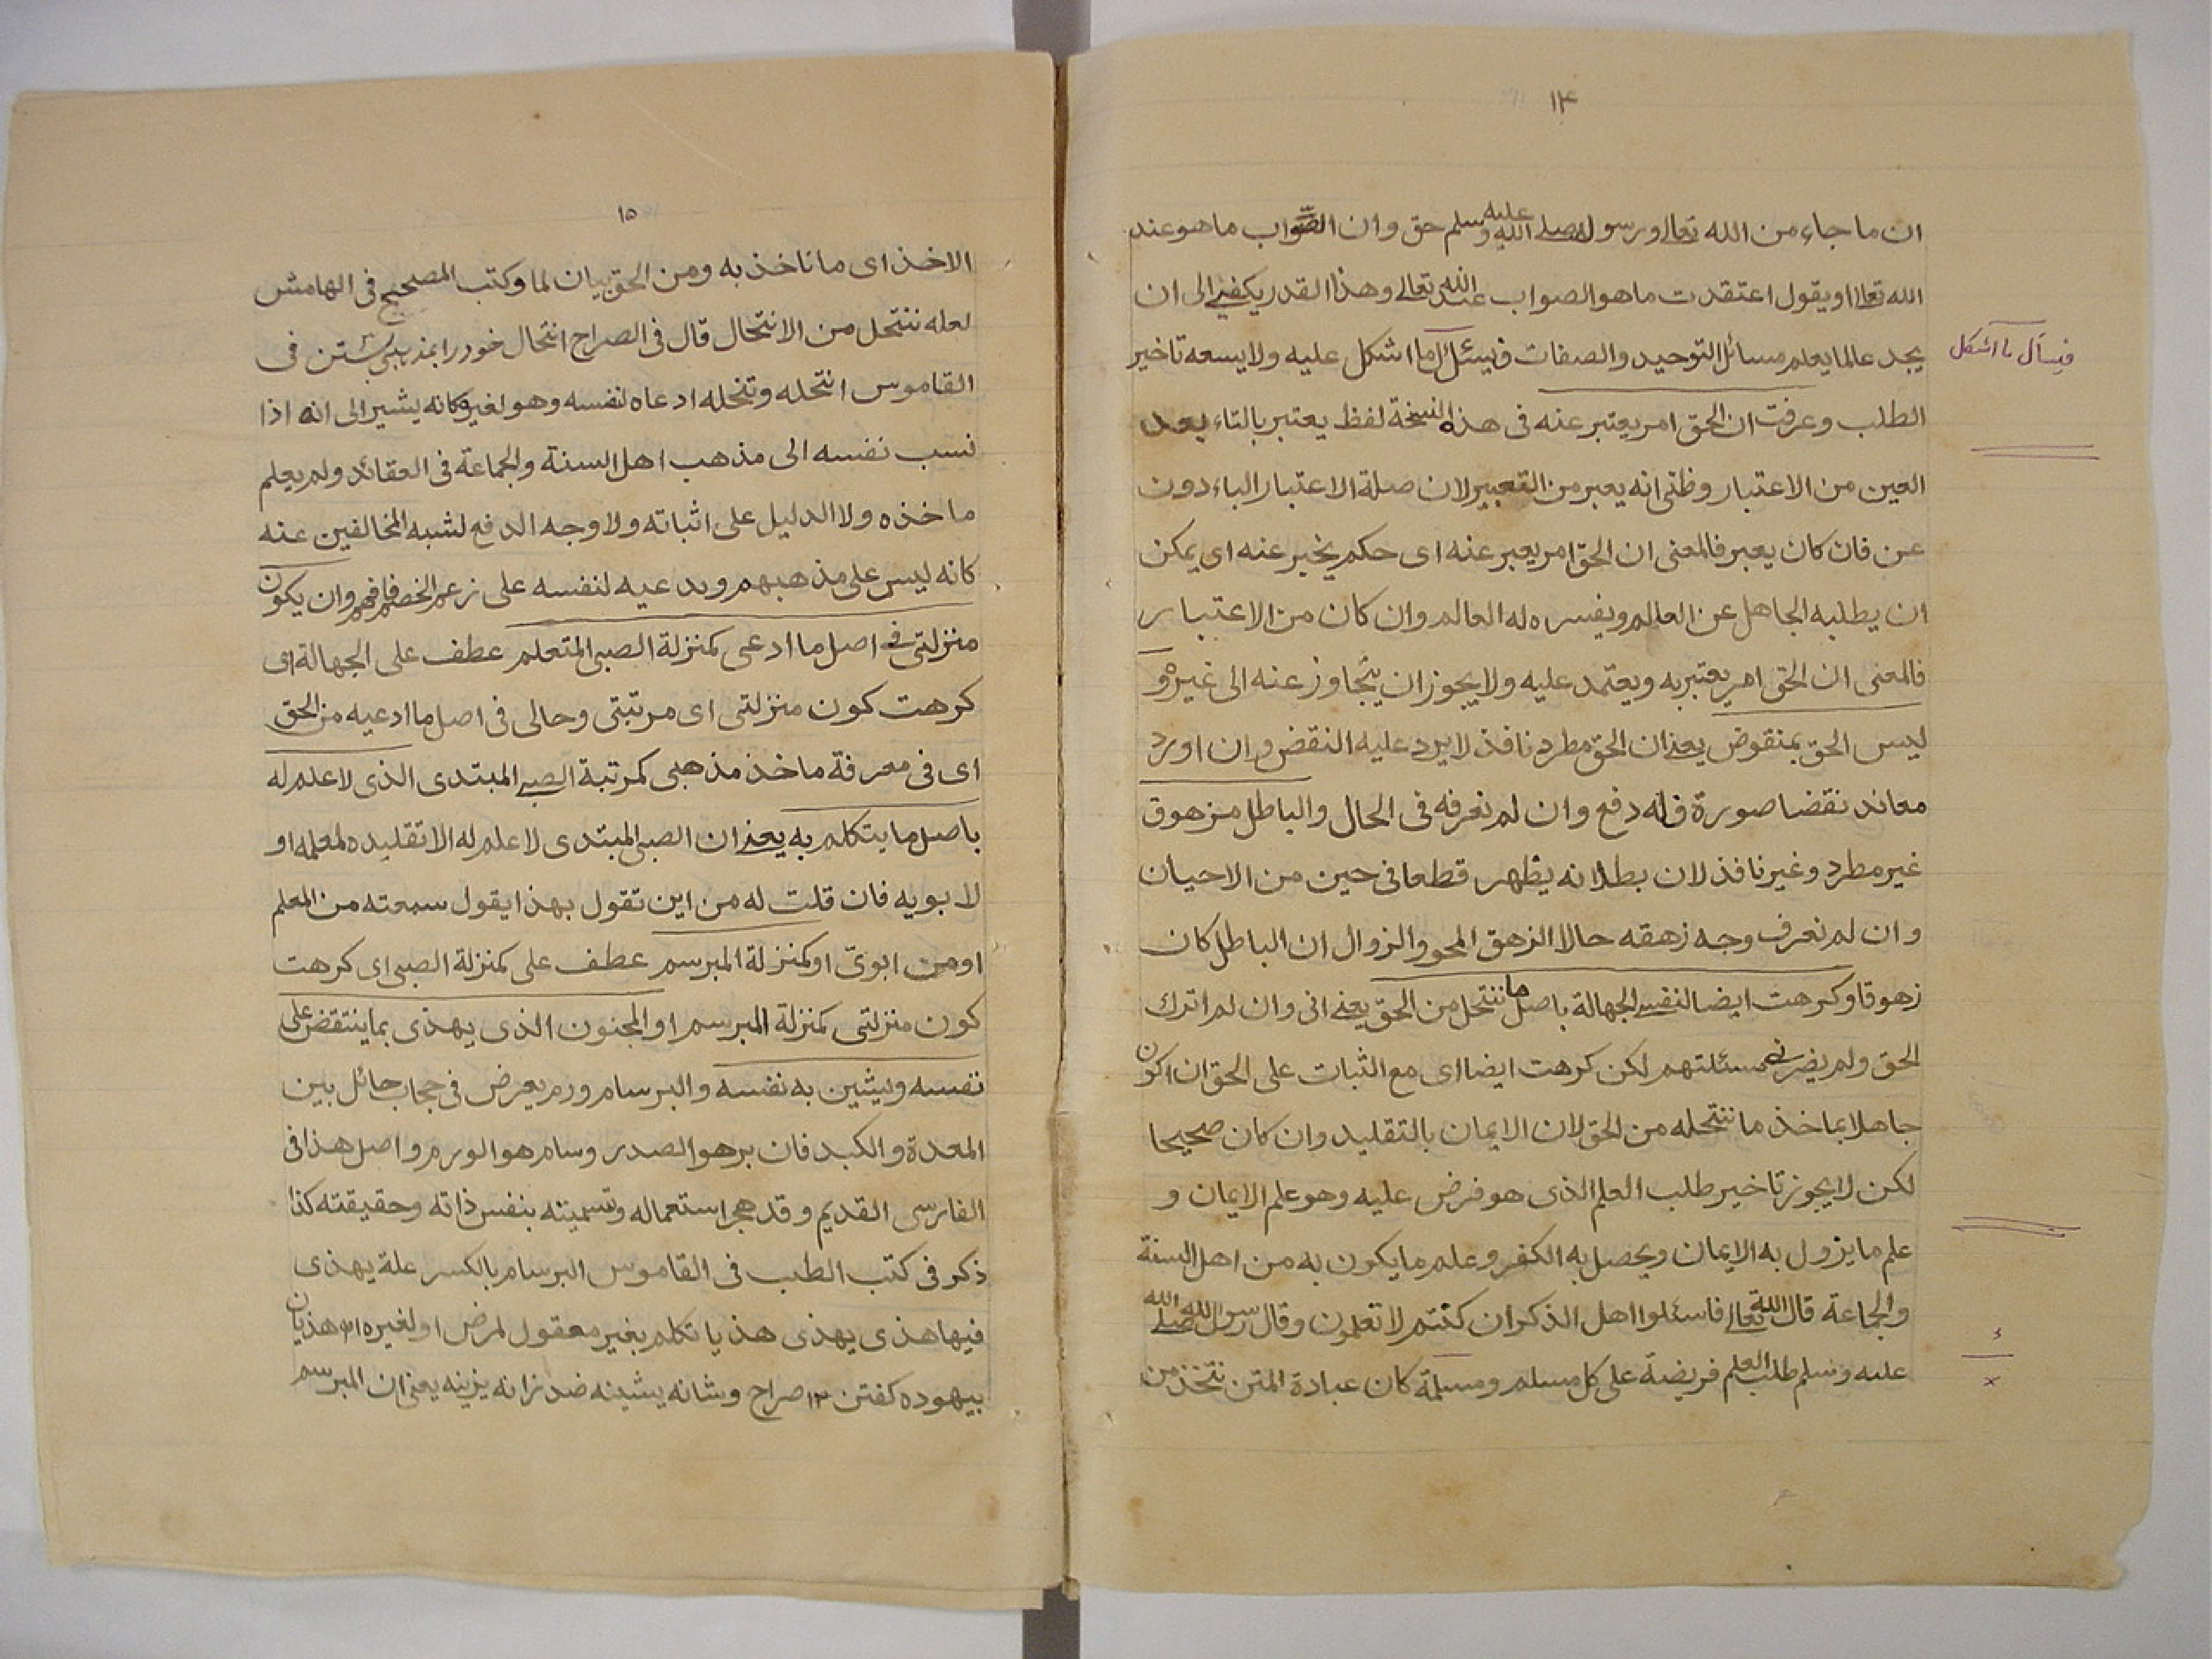 ١٤
ان ما جاء من الله تعالى ورسوله صلى الله عليه وسلم حق وان الصواب ما هو عند
الله تعالى او يقول اعتقدت ما هو الصواب عند الله تعالى وهذا القدر يكفي الى ان
يجد عالما يعلم مسائل التوحيد والصفات فيسئل لما اشكل عليه ولا يسعه تاخير
فيسأل ما اشكل
الطلب وعرفت ان الحق امر يعتبر عنه فى هذه النسخة لفظ يعتبر بالتاء بعد
العين من الاعتبار وظنى انه يعبر من التعبير لان صلة الاعتبار الباء دون
عن فان كان يعبر فالمعنى ان الحق امر يعبر عنه اى حكم يخبر عنه اى يمكن
ان يطلبه الجاهل عن العالم ويفسره له العالم وان كان من الاعتبار
فالمعنى ان الحق امر يعتبر به ويعتمد عليه ولا يجوز ان يتجاوز عنه الى غيره و
ليس الحق بمنقوض يعنى ان الحق مطرد نافذ لا يرد عليه النقض وان اورد
معاند نقضا صورة فله دفع وان لم نعرفه فى الحال والباطل مزهوق
غير مطرد وغير نافذ لان بطلانه يظهر قطعا فى حين من الاحيان
وان لم نعرف وجه زهقه حالا الزهق المحو والزوال ان الباطل كان
زهوقا وكرهت ايضا لنفسى الجهالة باصل ما ننتحل من الحق يعنى انى وان لم اترك
الحق ولم يضرنى مسئلتهم لكن كرهت ايضا اى مع الثبات على الحق ان اكون
جاهلا بماخذ ما ننتحله من الحق لان الايمان بالتقليد وان كان صحيحا
لكن لا يجوز تاخير طلب العلم الذى هو فرض عليه وهو علم الايمان و
علم ما يزول به الايمان ويحصل به الكفر وعلم ما يكون به من اهل السنة
والجماعة قال الله تعالى فاسئلوا اهل الذكر ان كنتم لا تعلمون وقال رسول الله صلى الله
عليه وسلم طلب العلم فريضة على كل مسلم ومسلمة كان عبادة المتن نتخذ من
١٥
الاخذ اى ما ناخذ به ومن الحق بيان لما وكتب المصحح فى الهامش
لعله ننتحل من الانتحال قال فى الصراح انتحال خود را بمذهبى بستن فى
القاموس انتحله وتنحله ادعاه لنفسه وهو لغيره كانه يشير الى انه اذا
نسب نفسه الى مذهب اهل السنة والجماعة فى العقائد ولم يعلم
ماخذه ولا الدليل على اثباته ولا وجه الدفع لشبه المخالفين عنه
كانه ليس على مذهبهم ويدعيه لنفسه على زعم الخصم فافهم وان يكون
منزلتى فى اصل ما ادعى كمنزلة الصبى المتعلم عطف على الجهالة اى
كرهت كون منزلتى اى مرتبتى وحالى فى اصل ما ادعيه من الحق
اى فى معرفة ماخذ مذهبى كمرتبة الصبى المبتدى الذى لا علم له
باصل ما يتكلم به يعنى ان الصبى المبتدى لا علم له الا تقليده لمعلمه او
لابويه فان قلت له من اين تقول بهذا يقول سمعته من المعلم
او من ابوى او كمنزلة المبرسم عطف على كمنزلة الصبى اى كرهت
كون منزلتى كمنزلة المبرسم او المجنون الذى يهذى بما ينتقض على
نفسه ويشين به نفسه والبرسام ورم يعرض فى حجاب حائل بين
المعدة والكبد فان بر هو الصدر وسام هو الورم واصل هذا فى
الفارسى القديم وقد هجر استعماله وتسميته بنفس ذاته وحقيقته كذا
ذكر فى كتب الطب فى القاموس البرسام بالكسر علة يهذى
فيها هذى يهذى هذيا تكلم بغير معقول لمرض او لغيره اه هذيان
بيهوده كفتن ١٢ صراح وشانه يشينه ضد زانه يزينه يعنى ان المبرسم